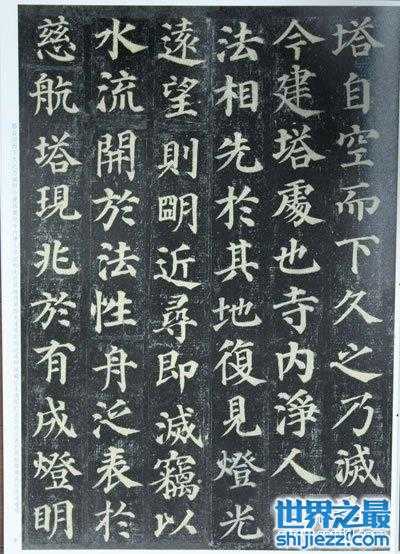 塔自空而下久之乃滅
今建塔處也寺內淨人
法相先於其地復見燈光
遠望則明近尋即滅竊以
水流開於法性舟泛表於
慈航塔現兆於有成燈明
世界之最
shijiezz.com